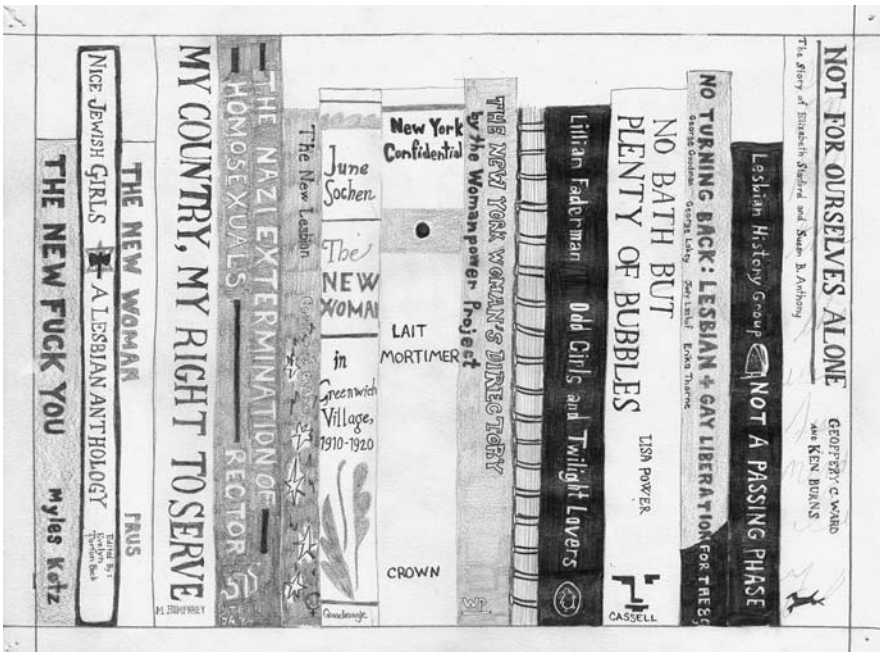 THE NEW FUCK YOU
Myles Kotz
NICE JEWISH GIRLS
A LESBIAN ANTHOLOGY
Edited By:
Evelyn
Torton Beck
THE NEW WOMAN
PRUS
MY COUNTRY, MY RIGHT TO SERVE
M. HUMPHREY
THE NAZI EXTERMINATION OF
HOMOSEXUALS
RECTOR
STEIN
DAY
The New Lesbian
June
Sochen
The
NEW
WOMAN
in
Greenwich
Village,
1910-1920
Quadrangle
New York
Confidential
LAIT
MORTIMER
CROWN
THE NEW YORK WOMAN'S DIRECTORY
by the Womanpower Project
WP
Lillian Faderman
Odd Girls and Twilight Lovers
NO BATH BUT
PLENTY OF BUBBLES
LISA POWER
CASSELL
NO TURNING BACK: LESBIAN + GAY LIBERATION FOR THE 80s
George Goodman George Lakey Judy Lashof Erika Thorne
Lesbian History Group
NOT A PASSING PHASE
NOT FOR OURSELVES ALONE
The Story of Elizabeth Stanford and Susan B. Anthony
GEOFFERY C. WARD
AND KEN BURNS